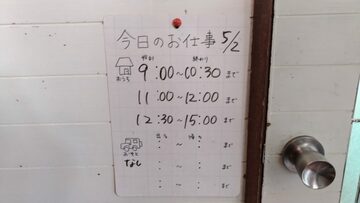 今日のお仕事 5/2
開始 終わり
おうち 9:00~10:30 まで
11:00~12:00 まで
12:30~15:00 まで
出る 帰る
おそと : ~ : まで
なし : ~ : まで
: ~ : まで